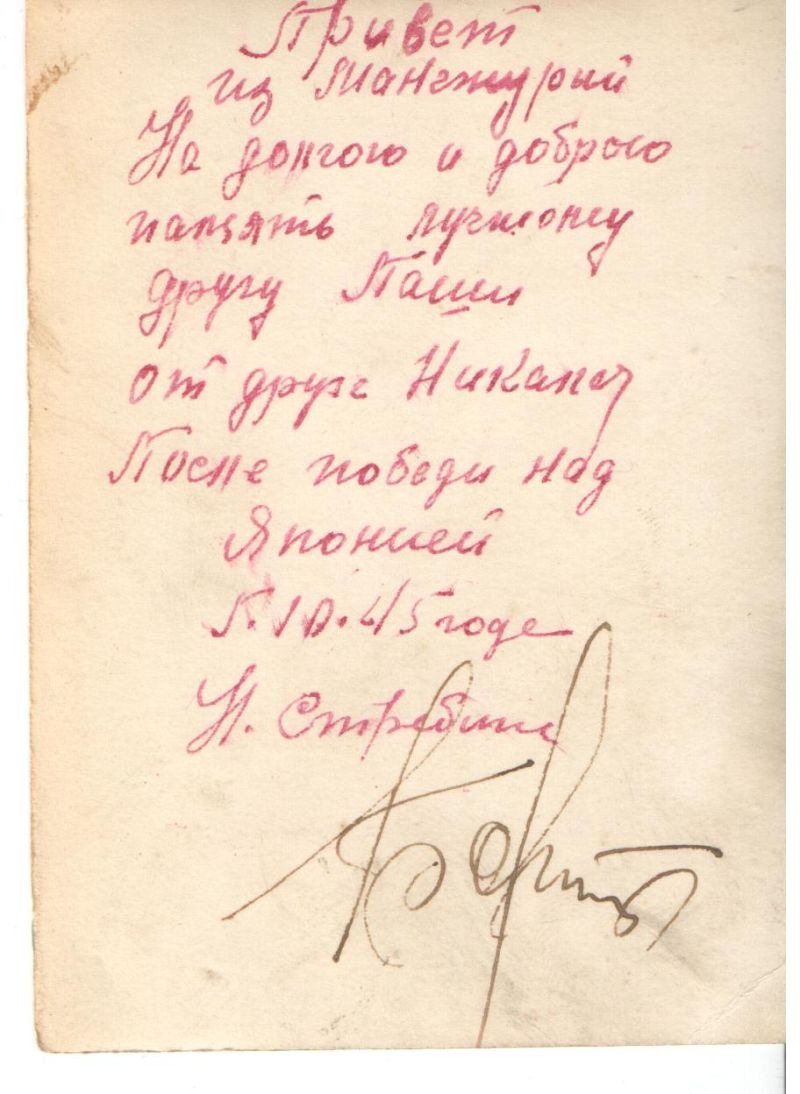 Привет
из Манжурий
На долгою и доброю
память лучшому
другу Паши
от друга
После победи над
Японией
10.45 годе
Н.